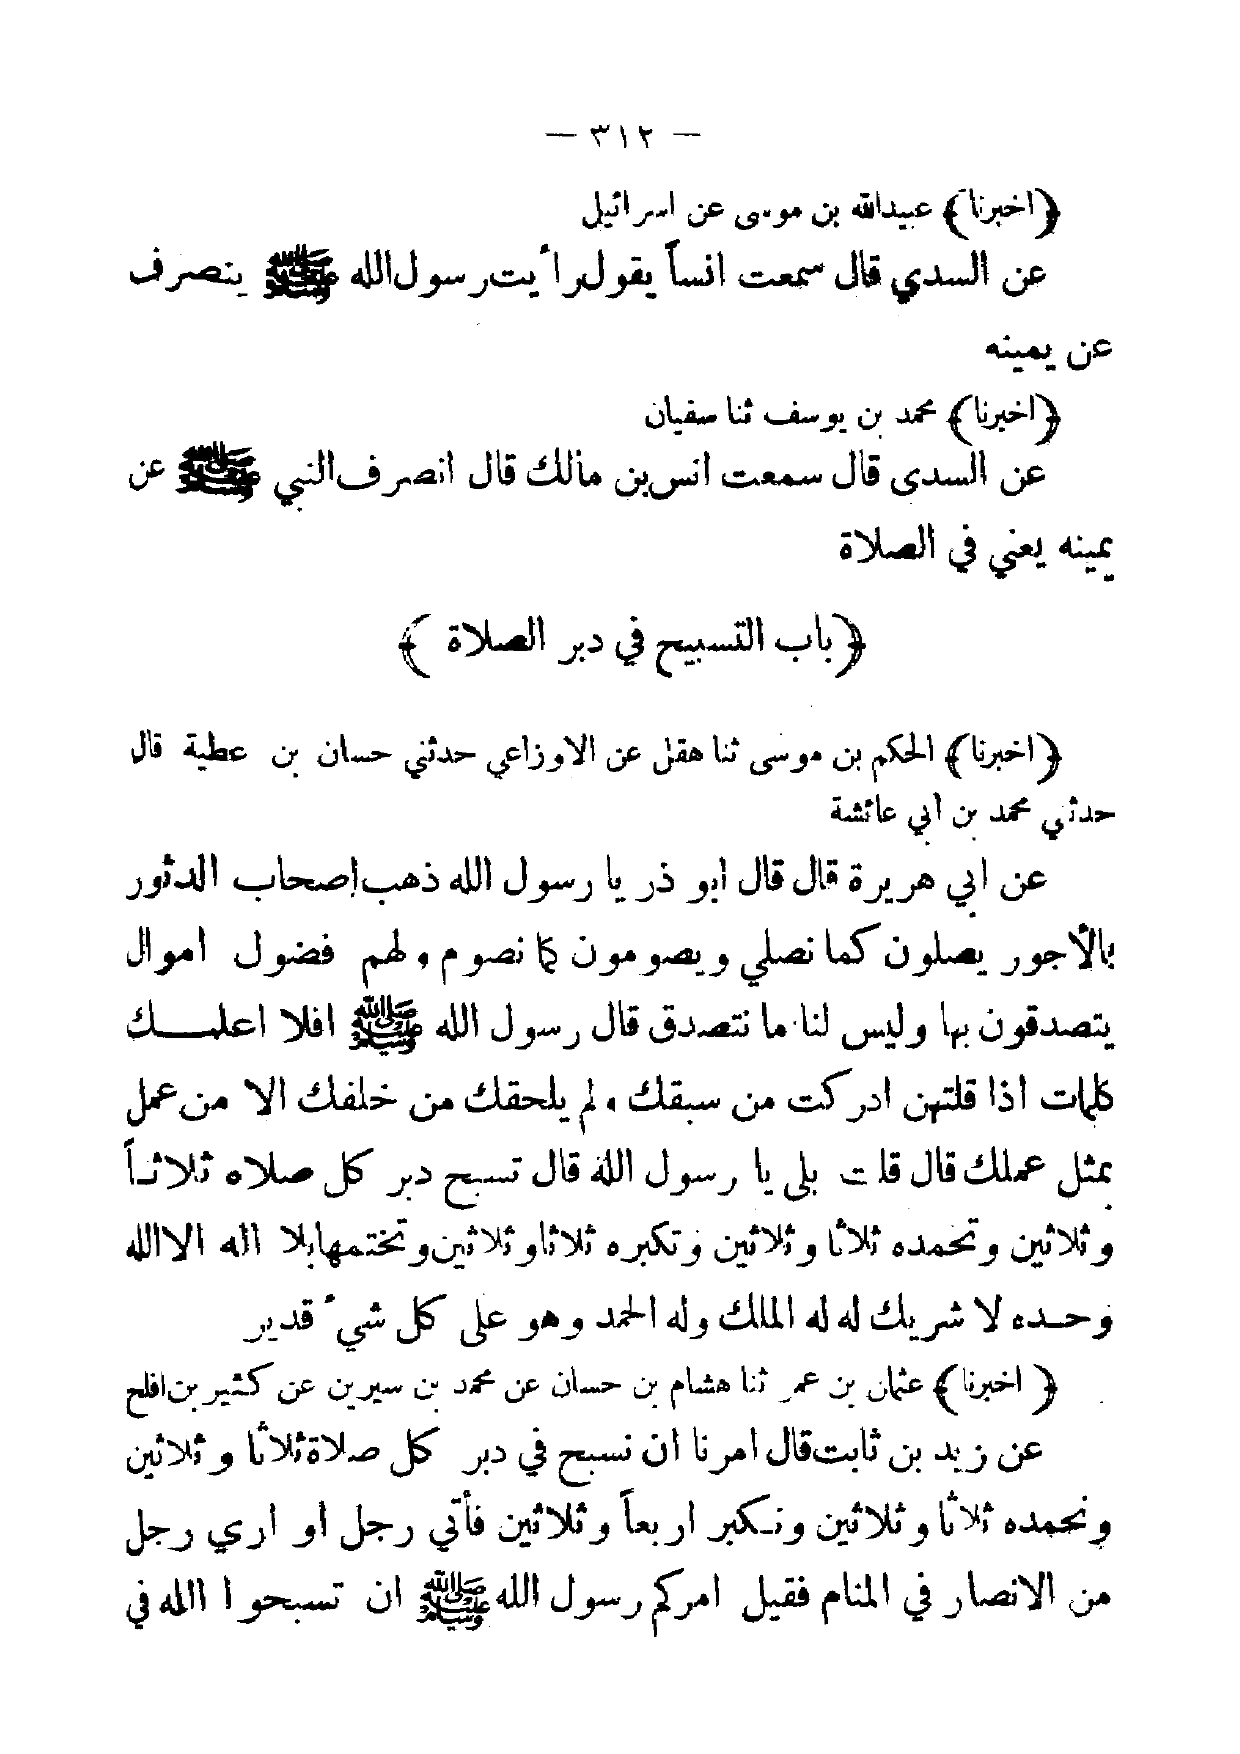 — ٣١٢ —
﴿اخبرنا﴾ عبيدالله بن موسى عن اسرائيل
عن السدي قال سمعت انساً يقول رأيت رسول الله ﷺ ينصرف
عن يمينه
﴿اخبرنا﴾ محمد بن يوسف ثنا سفيان
عن السدى قال سمعت انس بن مالك قال انصرف النبي ﷺ عن
يمينه يعني في الصلاة
﴿باب التسبيح في دبر الصلاة﴾
﴿اخبرنا﴾ الحكم بن موسى ثنا هقل عن الاوزاعي حدثني حسان بن عطية قال
حدثني محمد بن أبي عائشة
عن ابي هريرة قال قال ابو ذر يا رسول الله ذهب إصحاب الدثور
بالأجور يصلون كما نصلي ويصومون كما نصوم ولهم فضول اموال
يتصدقون بها وليس لنا ما نتصدق قال رسول الله ﷺ افلا اعلمك
كلمات اذا قلتهن ادركت من سبقك ولم يلحقك من خلفك الا من عمل
بمثل عملك قال قلت بلى يا رسول الله قال تسبح دبر كل صلاه ثلاثاً
وثلاثين وتحمده ثلاثا وثلاثين وتكبره ثلاثا وثلاثين وتختمها بلا اله الا الله
وحده لا شريك له له الملك وله الحمد وهو على كل شيء قدير
﴿اخبرنا﴾ عثمان بن عمر ثنا هشام بن حسان عن محمد بن سيرين عن كثير بن افلح
عن زيد بن ثابت قال امرنا ان نسبح في دبر كل صلاة ثلاثا وثلاثين
ونحمده ثلاثا وثلاثين ونكبر اربعاً وثلاثين فأتي رجل او اري رجل
من الانصار في المنام فقيل امركم رسول الله ﷺ ان تسبحوا الله في